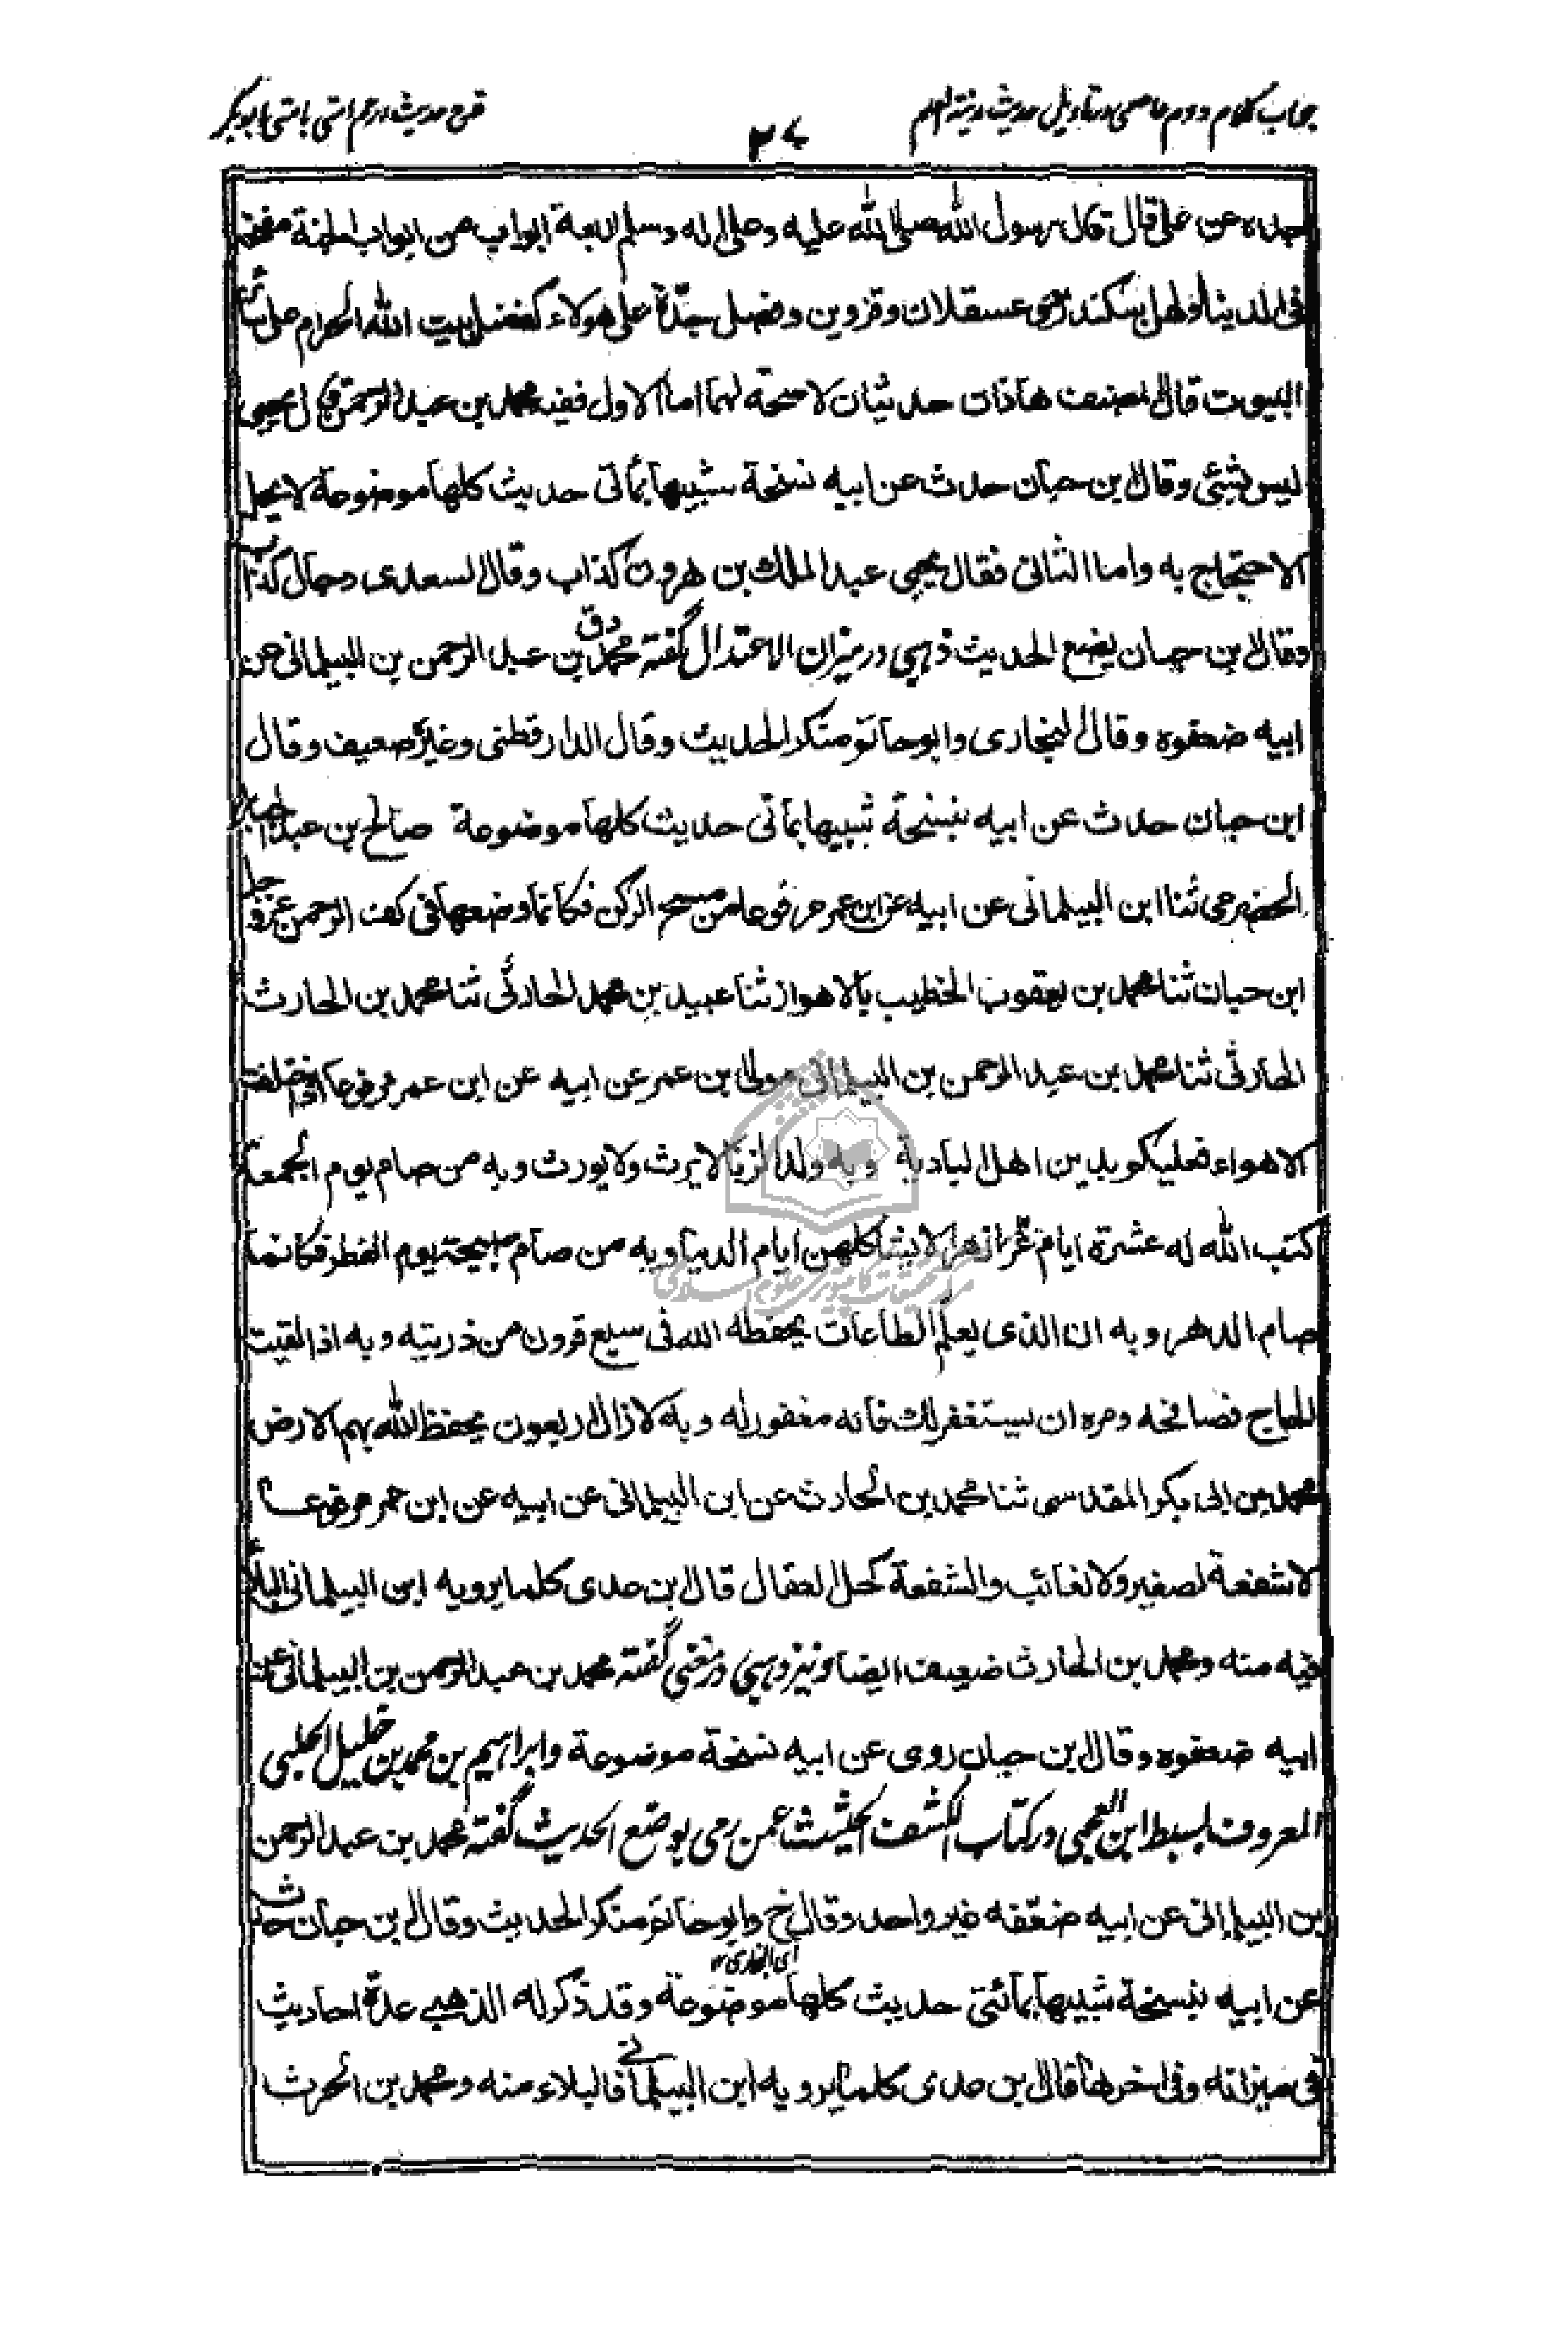 جواب کلام دوم عاصمی در تاویل حدیث مدینة العلم
۲۷
قدح حدیث ارحم امتی بامتی ابوبکر
جده عن علی قال قال رسول الله صلی الله علیه وعلی اله وسلم اربعة ابواب من ابواب الجنة مفتحة
فی الدنیا اولهن اسکندریة وعسقلان وقزوین وفضل جدّة علی هولاء کفضل بیت الله الحرام علی سائر
البیوت قال المصنف هذان حدیثان لا صحة لهما اما الاول ففیه محمد بن عبد الرحمن قال یحیی
لیس بشئ وقال ابن حبان حدث عن ابیه نسخة شبیها بمأتی حدیث کلها موضوعة لا یحل
الاحتجاج به واما الثانی فقال یحیی عبد الملک بن هرون کذاب وقال السعدی دجال کذاب
وقال ابن حبان یضع الحدیث ذهبی در میزان الاعتدال گفته محمد بن عبد الرحمن بن البیلمانی عن
دق
ابیه ضعفوه وقال البخاری وابو حاتم منکر الحدیث وقال الدارقطنی وغیره ضعیف وقال
ابن حبان حدث عن ابیه بنسخة شبیها بمأتی حدیث کلها موضوعة صالح بن عبد الجبار
الحضرمی ثنا ابن البیلمانی عن ابیه عن ابن عمر مرفوعا من مسح الرکن فکانما وضعها فی کف الرحمن عز وجل
ابن حبان ثنا محمد بن یعقوب الخطیب بالاهواز ثنا عبید بن محمد الحارثی ثنا محمد بن الحارث
الحارثی ثنا محمد بن عبد الرحمن بن البیلمانی مولی ابن عمر عن ابیه عن ابن عمر مرفوعا اذا اختلفت
الاهواء فعلیکم بدین اهل البادیة وبه ولد الزنا لا یرث ولا یورث وبه من صام یوم الجمعة
کتب الله له عشرة ایام غرّ ازهر لا یشاکلهن ایام الدنیا وبه من صام صبیحة یوم الفطر فکانما
صام الدهر وبه ان الذی یعلم الطاعات یحفظه الله فی سبع قرون من ذریته وبه اذا لقیت
الحاج فصافحه ومره ان یستغفر لک فانه مغفور له وبه لا زال اربعون یحفظ الله بهم الارض
محمد بن ابی بکر المقدسی ثنا محمد بن الحارث عن ابن البیلمانی عن ابیه عن ابن عمر مرفوعا
لا شفعة لصغیر ولا لغائب والشفعة کحل العقال قال ابن عدی کلما یرویه ابن البیلمانی البلاء
فیه منه ومحمد بن الحارث ضعیف ایضا ونیز ذهبی در مغنی گفته محمد بن عبد الرحمن بن البیلمانی عن
ابیه ضعفوه وقال ابن حبان روی عن ابیه نسخة موضوعة وابراهیم بن محمد بن خلیل الحلبی
المعروف بسبط ابن العجمی در کتاب الکشف الحثیث عمن رمی بوضع الحدیث گفته محمد بن عبد الرحمن
بن البیلمانی عن ابیه ضعّفه غیر واحد وقال خ وابو حاتم منکر الحدیث وقال ابن حبان حدث
ای البخاری
عن ابیه بنسخة شبیها بمائتی حدیث کلها موضوعة وقد ذکر له الذهبی عدّة احادیث
فی میزانه وفی اخرها قال ابن عدی کلما یرویه ابن البیلمانی فالبلاء منه ومحمد بن الحرث